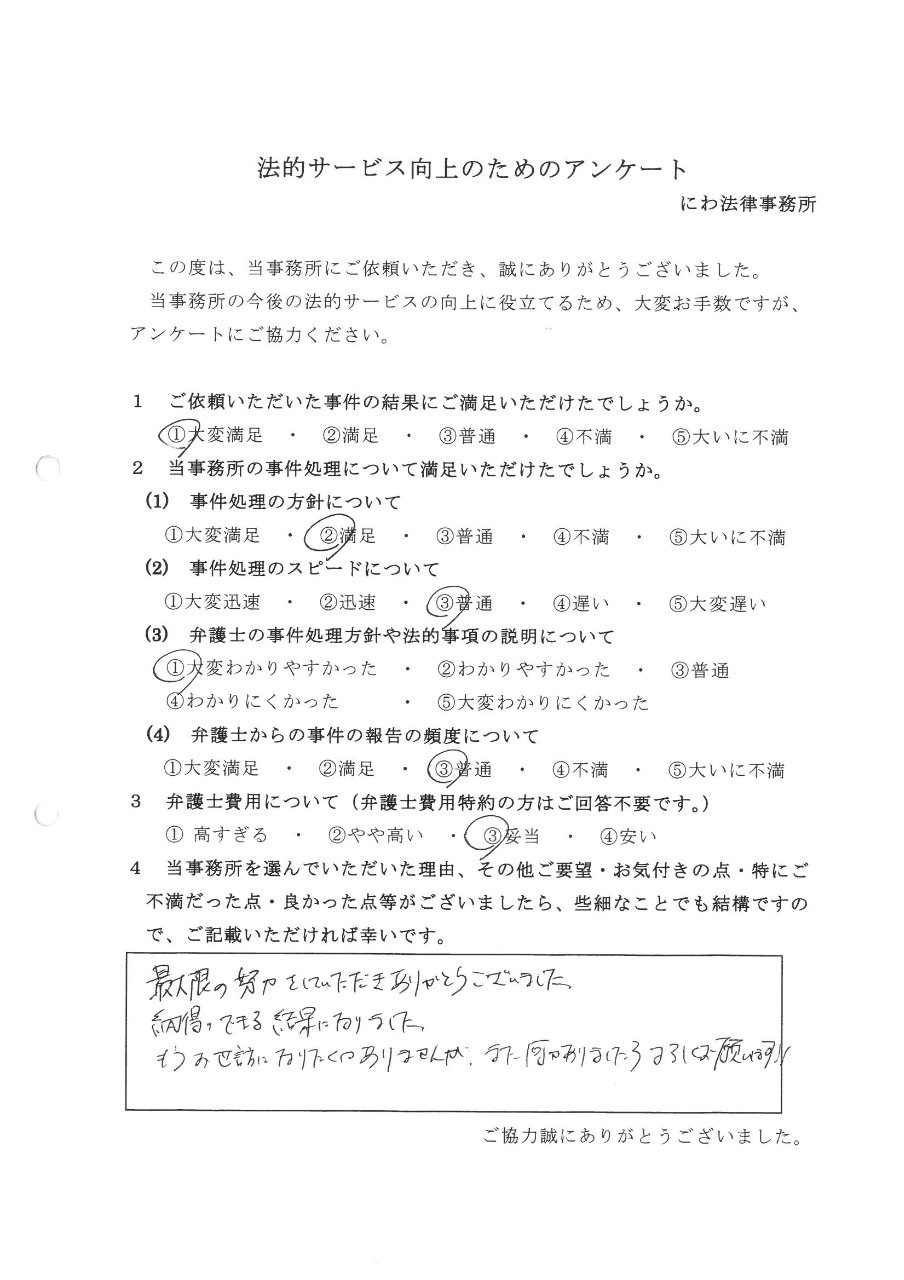 法的サービス向上のためのアンケート
にわ法律事務所
この度は、当事務所にご依頼いただき、誠にありがとうございました。
当事務所の今後の法的サービスの向上に役立てるため、大変お手数ですが、
アンケートにご協力ください。
1 ご依頼いただいた事件の結果にご満足いただけたでしょうか。
①大変満足 ・ ②満足 ・ ③普通 ・ ④不満 ・ ⑤大いに不満
2 当事務所の事件処理について満足いただけたでしょうか。
(1) 事件処理の方針について
①大変満足 ・ ②満足 ・ ③普通 ・ ④不満 ・ ⑤大いに不満
(2) 事件処理のスピードについて
①大変迅速 ・ ②迅速 ・ ③普通 ・ ④遅い ・ ⑤大変遅い
(3) 弁護士の事件処理方針や法的事項の説明について
①大変わかりやすかった ・ ②わかりやすかった ・ ③普通
④わかりにくかった ・ ⑤大変わかりにくかった
(4) 弁護士からの事件の報告の頻度について
①大変満足 ・ ②満足 ・ ③普通 ・ ④不満 ・ ⑤大いに不満
3 弁護士費用について(弁護士費用特約の方はご回答不要です。)
① 高すぎる ・ ②やや高い ・ ③妥当 ・ ④安い
4 当事務所を選んでいただいた理由、その他ご要望・お気付きの点・特にご
不満だった点・良かった点等がございましたら、些細なことでも結構ですの
で、ご記載いただければ幸いです。
最大限の努力をしていただきありがとうございました。
納得のできる結果になりました。
もうお世話になりたくはありませんが、また何かありましたらよろしくお願いします!!
ご協力誠にありがとうございました。